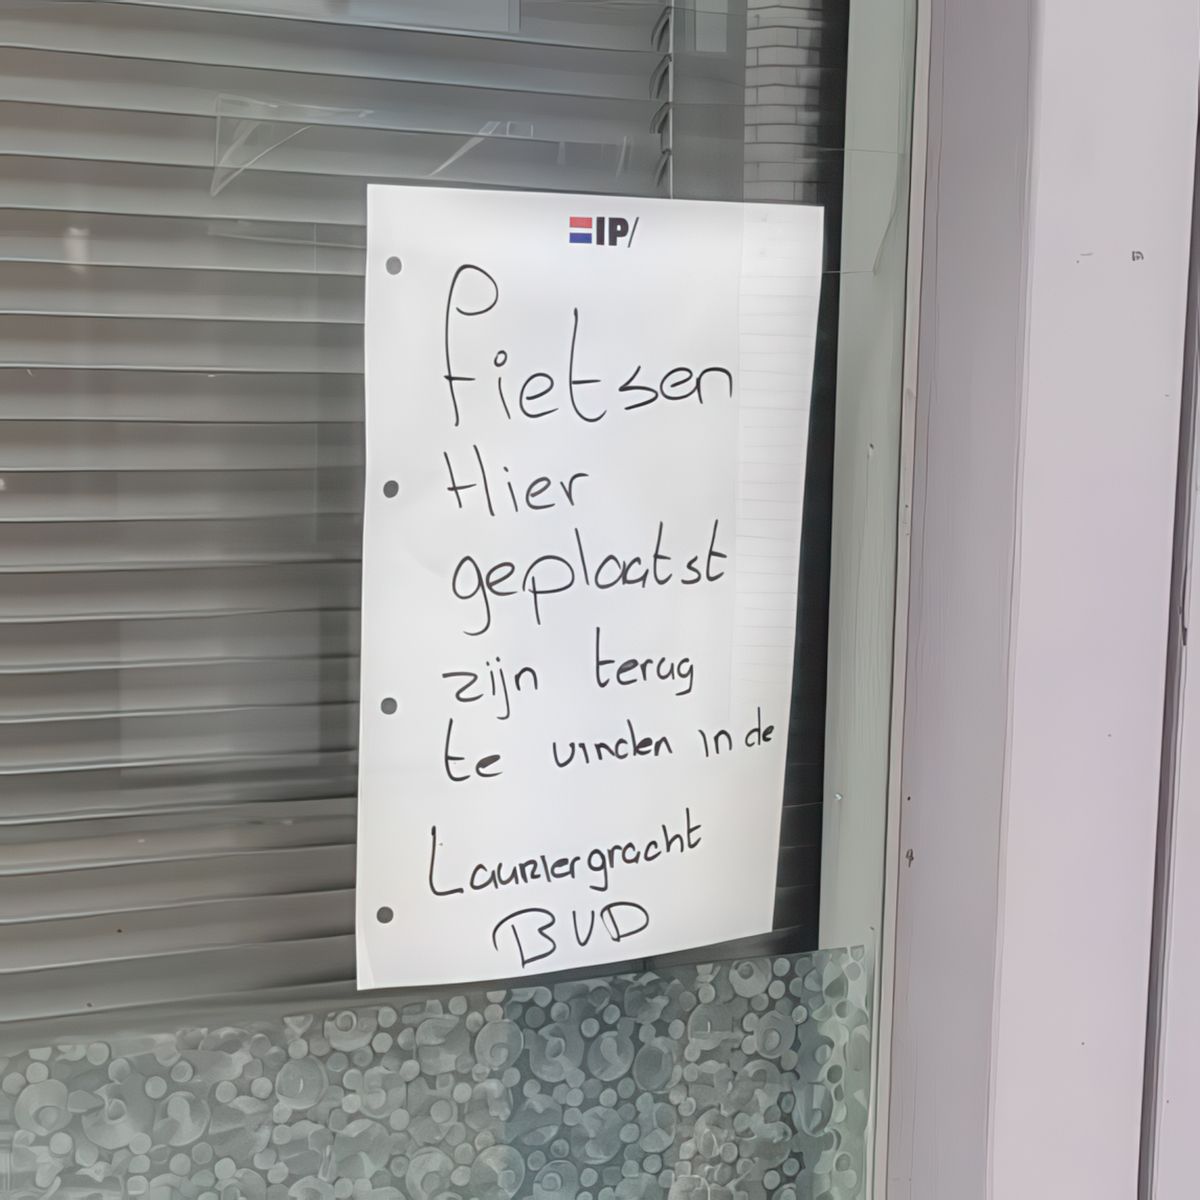 IP/
fietsen
Hier
geplaatst
zijn terug
te vinden in de
Lauriergracht
BVD